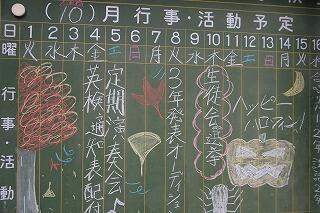 (10)月 行事・活動予定
日 1 2 3 4 5 6 7 8 9 10 11 12 13 14 15 16
曜 火 水 木 金 土 日 月 火 水 木 金 土 日 月 火 水
行事・活動
英検 通知表配付
定期演奏会♪
3年発表オーディ
生徒会選挙
ハッピー
ハロウィン!